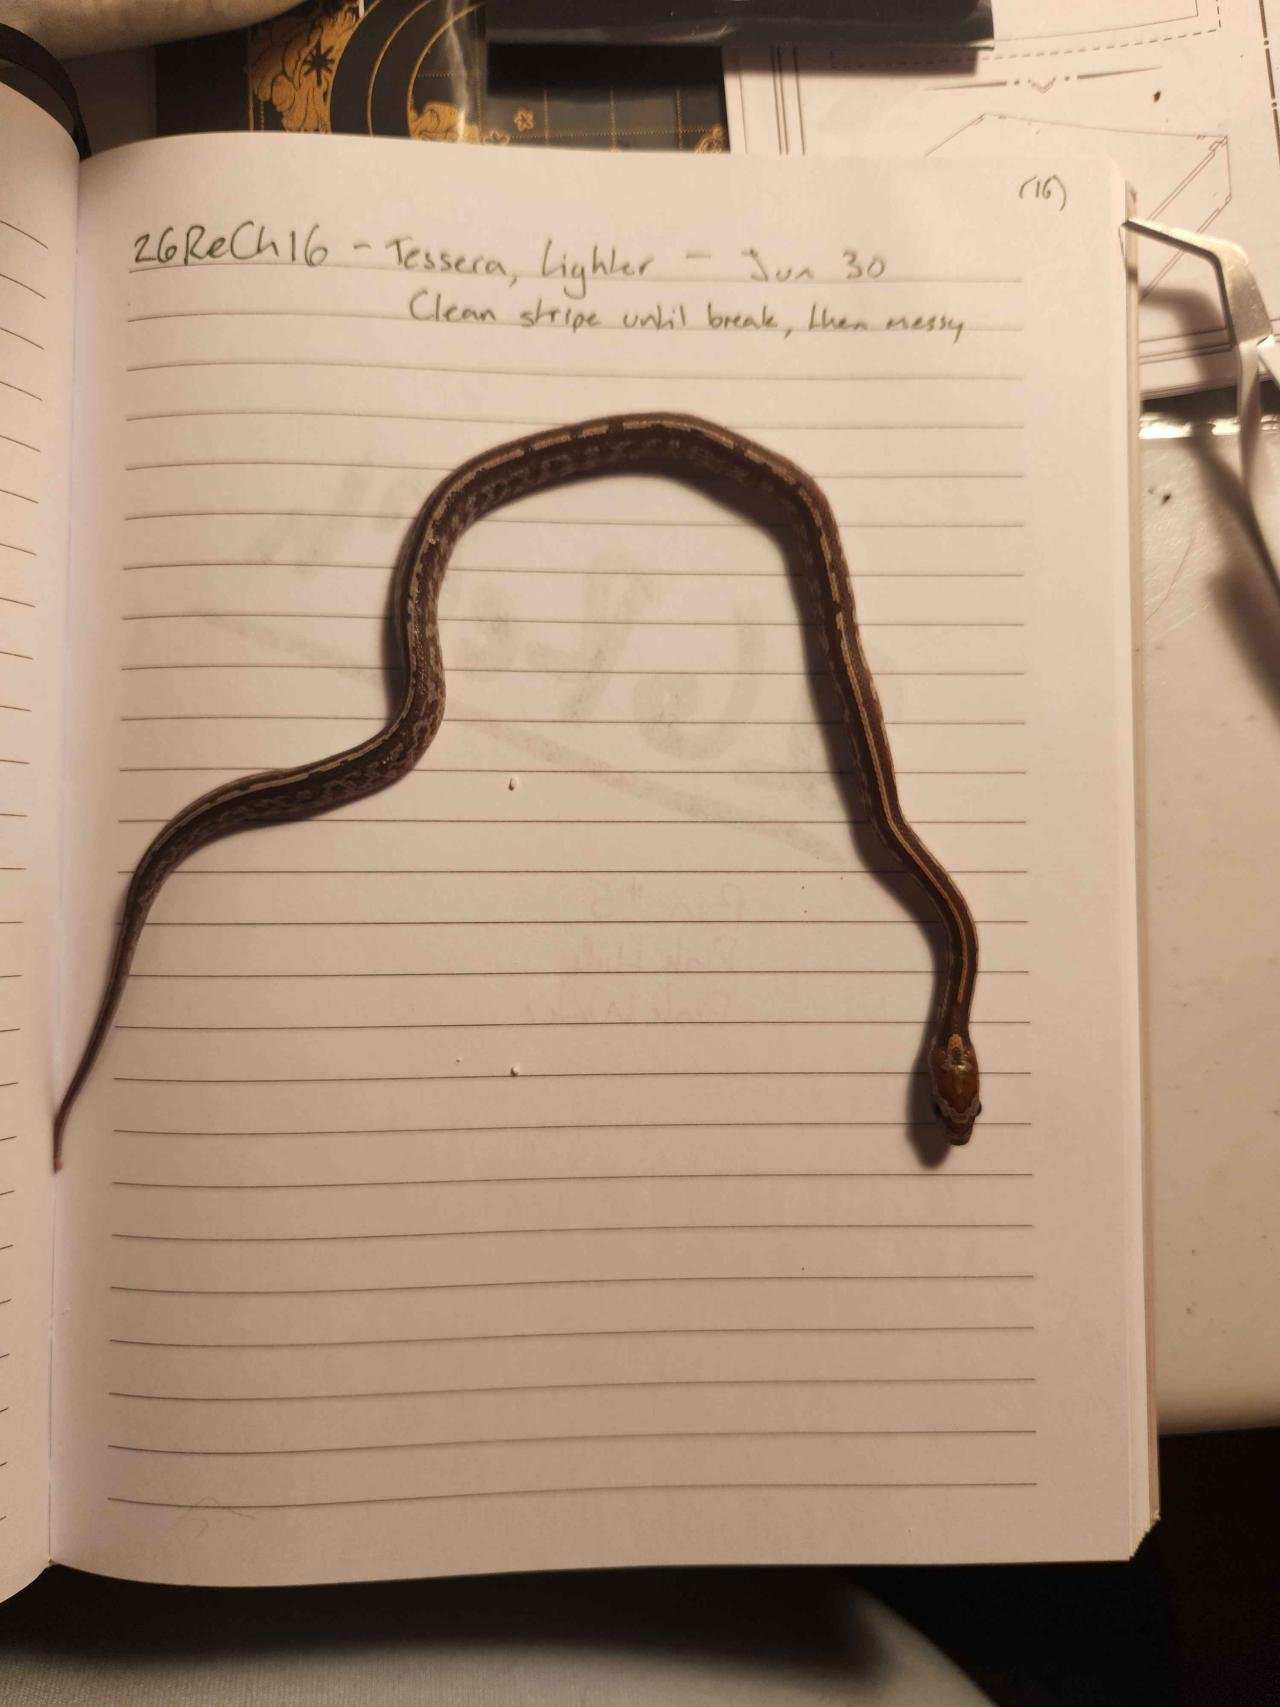 (16)
26ReCh16 - Tessera, Lighter - Jun 30
Clean stripe until break, then messy